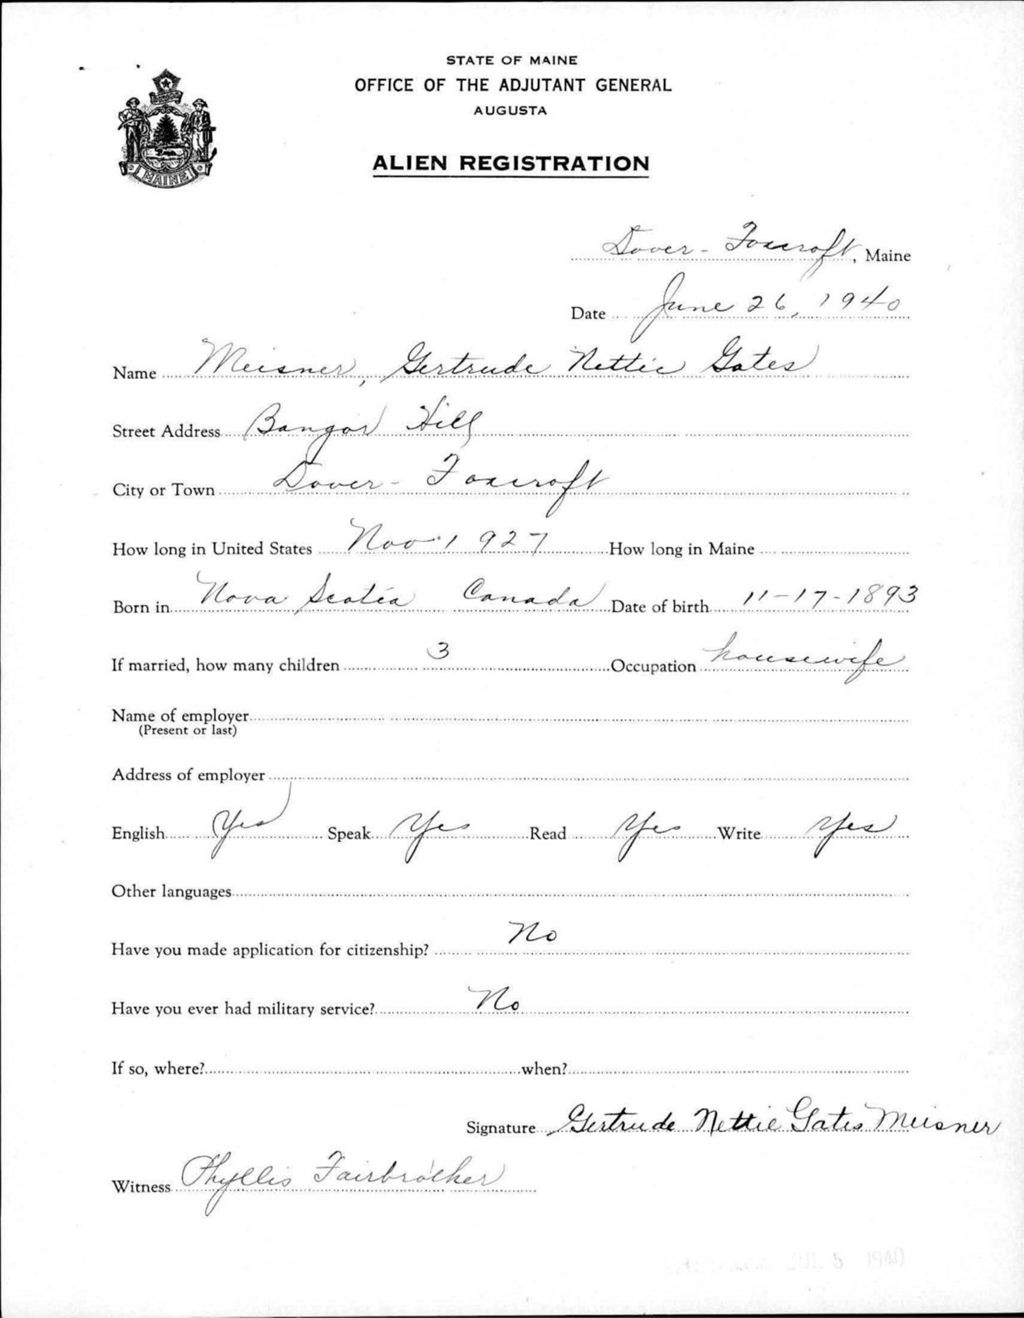 STATE OF MAINE
OFFICE OF THE ADJUTANT GENERAL
AUGUSTA
ALIEN REGISTRATION
MAINE
Dover-Foxcroft, Maine
Date June 26, 1940
Name Meisner, Gertrude Nettie Gates
Street Address Bangor Hill
City or Town Dover-Foxcroft
How long in United States Nov 1927 How long in Maine
Born in Nova Scotia Canada Date of birth 11-17-1893
If married, how many children 3 Occupation housewife
Name of employer
(Present or last)
Address of employer
English Yes Speak Yes Read Yes Write Yes
Other languages
Have you made application for citizenship? No
Have you ever had military service? No
If so, where? when?
Signature Gertrude Nettie Gates Meisner
Witness Phyllis Fairbrother
JUL 5 1940